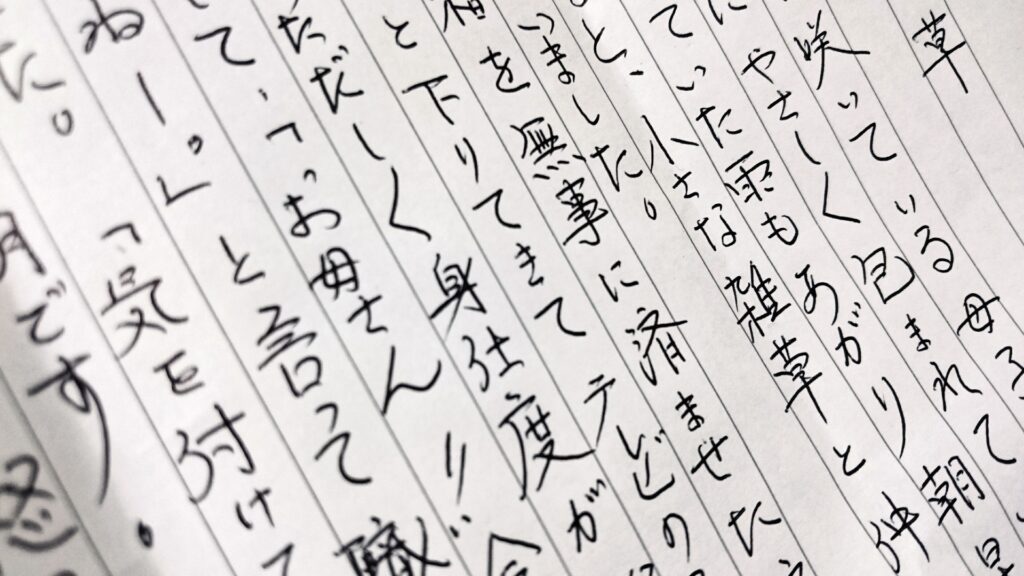 草
咲いている母子
にやさしく包まれて
ていた雨もあがり 朝
と、小さな雑草と 仲
いました。
を無事に済ませた
と下りてきて テレビの
ただしく 身仕度が
て、「お母さん!! 今
ねー。」と言って 職
た。 「気を付けて
月です。